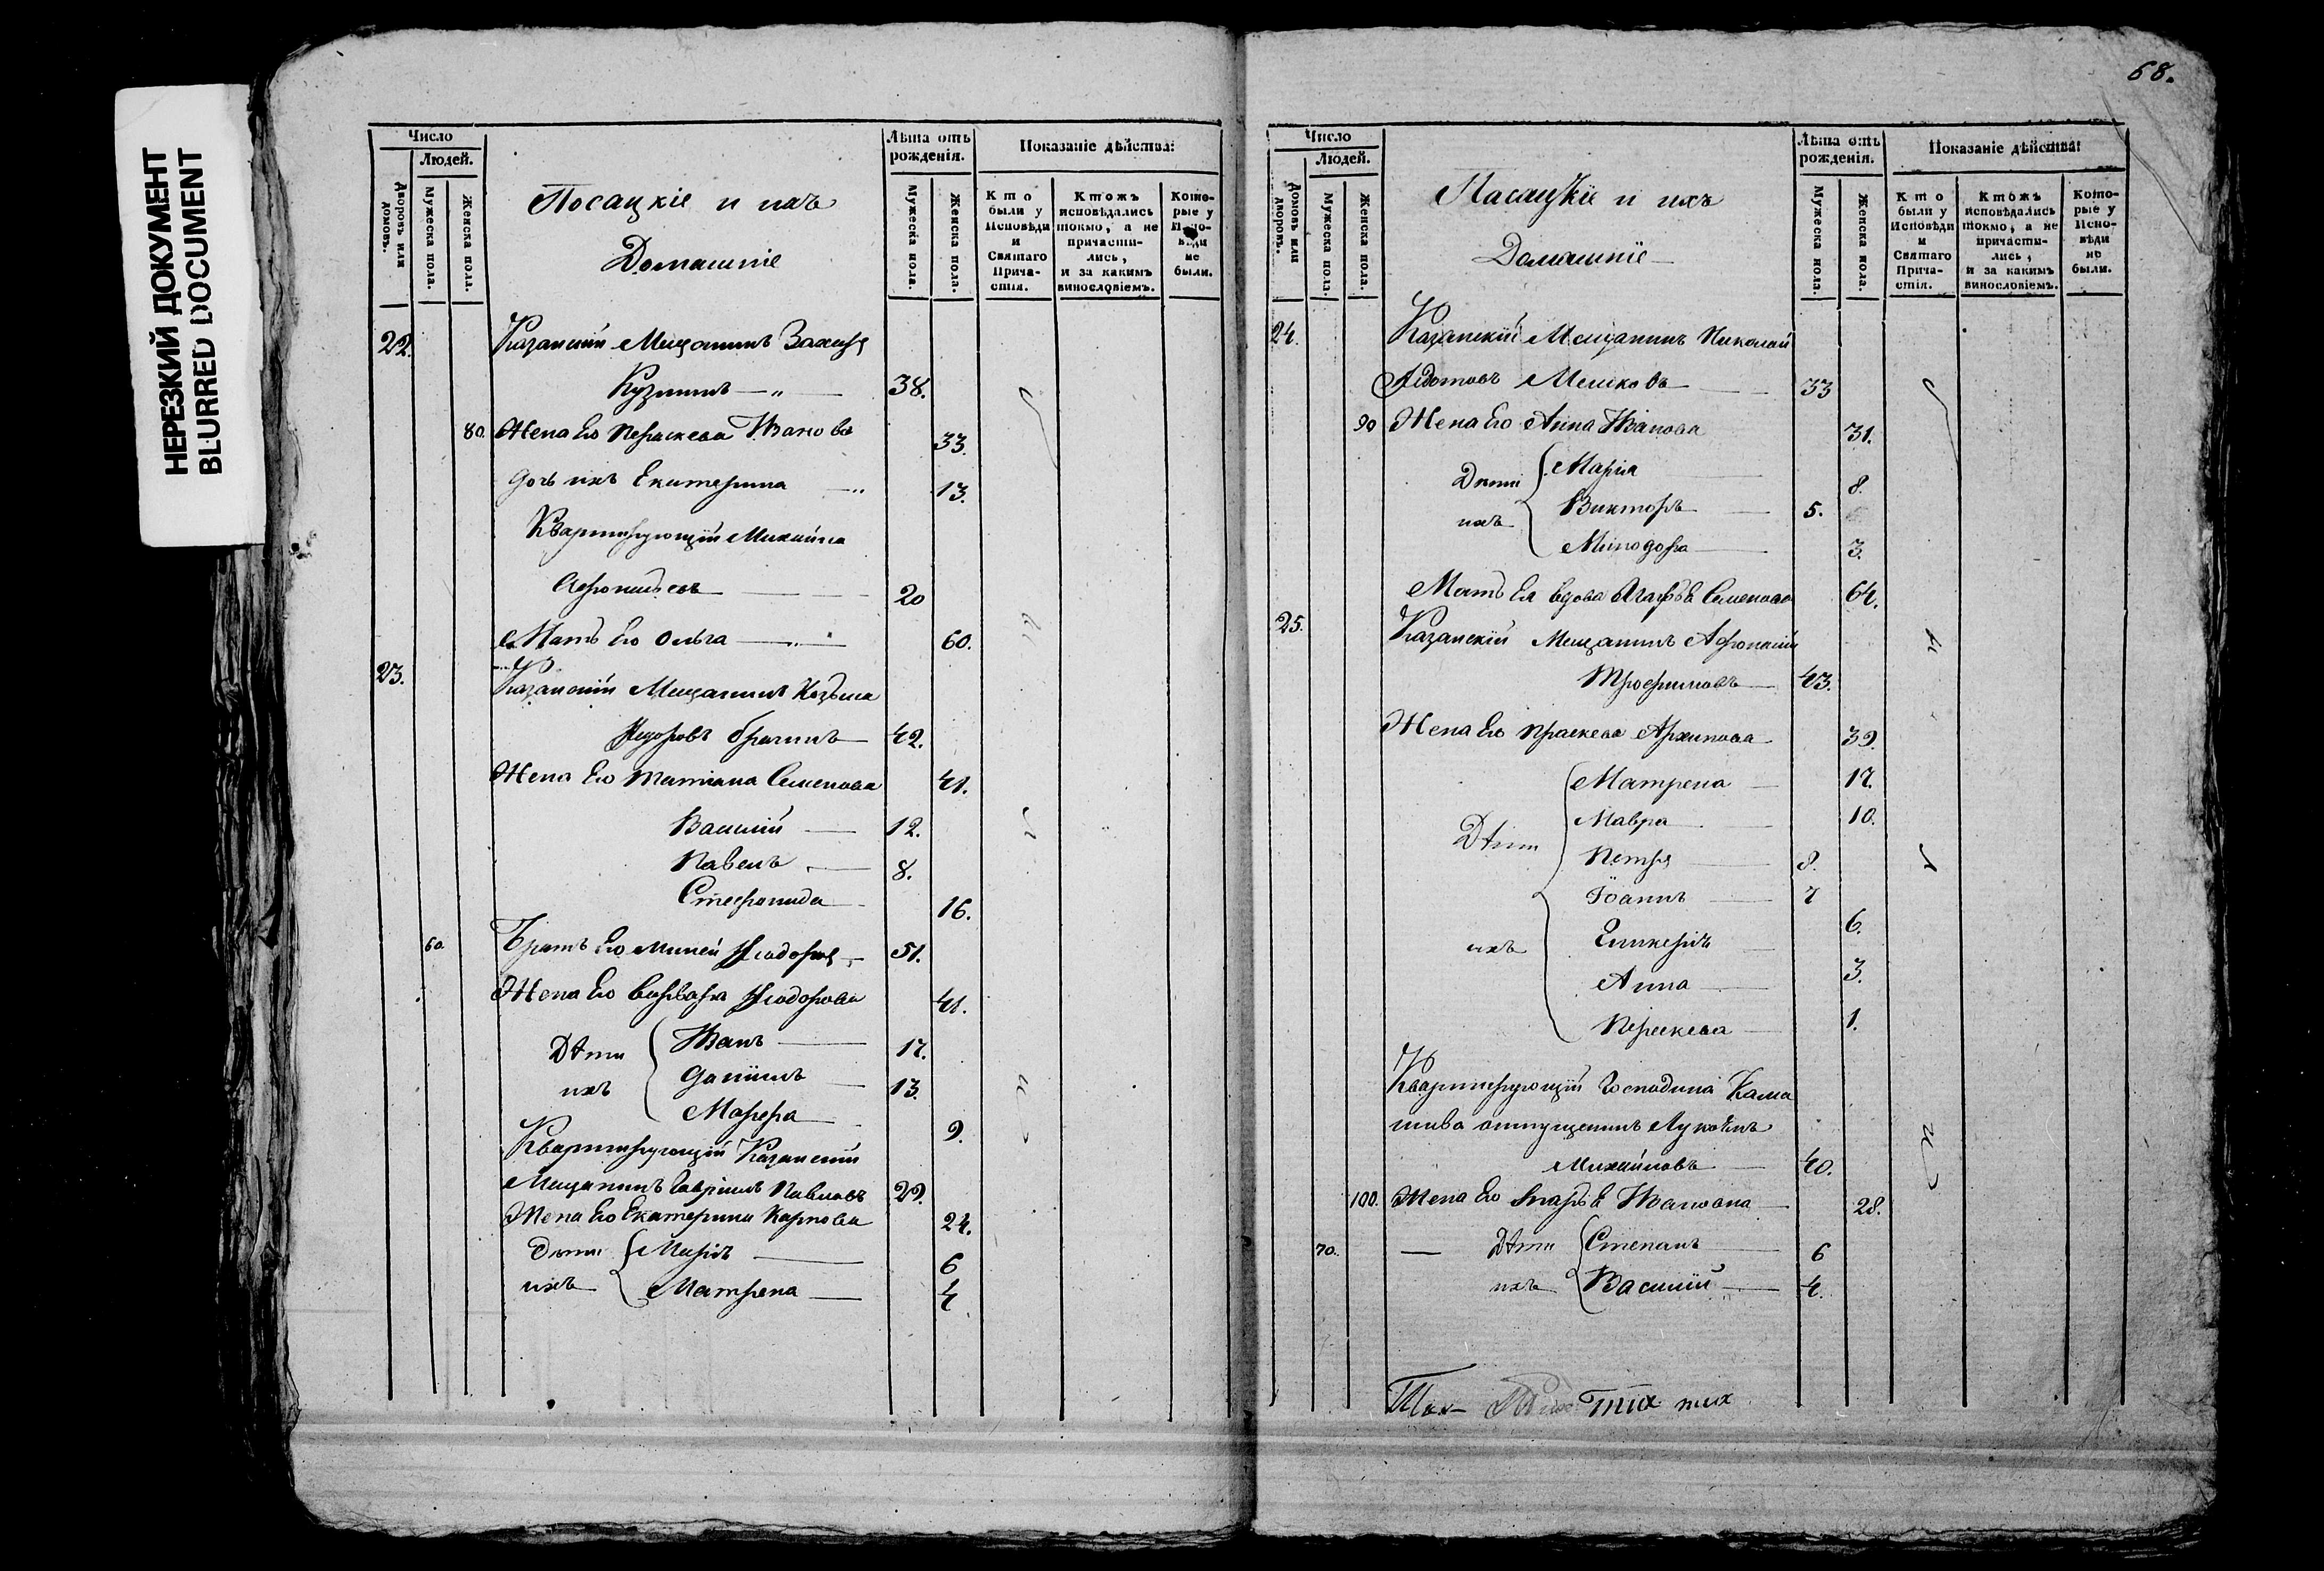 НЕРЕЗКИЙ ДОКУМЕНТ
BLURRED DOCUMENT
Число
Людей.
Дворовъ или домовъ.
Мужеска пола.
Женска пола.
Посацкіе и ихъ
Домашніе
Лѣта отъ рожденія.
Мужеска пола.
Женска пола.
Показаніе дѣйства:
Кто были у Исповѣди и Святаго Прича-стія.
Ктожъ исповѣдались токмо, а не причасти-лись, и за какимъ винословіемъ.
Кото-рые у Испо-вѣди не были.
22. Казанскій Мещанинъ Захаръ
Кузминъ — „ — 38.
80. Жена Его Параскева Иванова 33.
дочь ихъ Екатерина — „ 13.
Квартирующій Михаила
20
Мать Его Ольга — 60.
23. Казанскій Мещанинъ Козьма
Федоровъ 42.
Жена Его Татіана Семенова 41.
Василій — 12.
Павелъ — 8.
Стефанида 16.
60. Братъ Его Миней 51.
Жена Его Варвара Феодорова 41.
Дѣти Иванъ — 17.
ихъ Даніилъ 13.
Марѳа 9.
Квартирующій Казанскій
Мещанинъ Гавріилъ Павловъ 29.
Жена Его Екатерина Карпова 24.
Дѣти Марія — 6
ихъ Матрена — 4
68.
Число
Людей.
Домовъ или дворовъ.
Мужеска пола.
Женска пола.
Пасацкіе и ихъ
Домашніе —
Лѣта отъ рожденія.
Мужеска пола.
Женска пола.
Показаніе дѣйства:
Кто были у Исповѣди и Святаго Прича-стія.
Ктожъ исповѣдались токмо, а не причасти-лись, и за какимъ винословіемъ.
Кото-рые у Испо-вѣди не были.
24. Казанскій Мещанинъ Николай
Ѳедотовъ Мешковъ — 33
90 Жена Его Анна Иванова 31.
Дѣти Марія — 8.
ихъ Викторъ — 5.
Минодора — 3.
Мать Ея вдова Агафья Семенова 64.
25. Казанскій Мещанинъ Афонасій
Трофимовъ — 43.
Жена Его Праскева Архипова 39.
Матрена — 17.
Мавра — 10.
Дѣти Петръ — 8.
Іоаннъ — 7
ихъ Гликерія — 6.
Анна — 3.
Параскева — 1.
Квартирующій Господина Кама
шива отпущенинъ
Михайловъ — 40.
100. Жена Его Ивановна — 28.
70. — Дѣти Степанъ — 6
ихъ Василій — 4.
тих